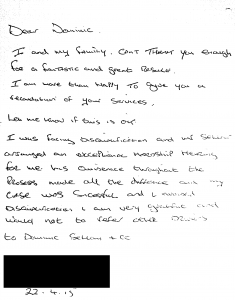 Dear Dominic.
I and my family, Can't Thank you enough
for a fantastic and great Result.
I am more than happy To give you a
recomendation of your services,
Let me know if this is ok
I was facing Disqualification and
arranged an exceptional Hardship Hearing
for me his Guidence throughout the
Process made all the difference and my
case was Successful and I avoided
Disqualification I am very grateful and
would not to refer other Drivers
to Dominic
22.4.15